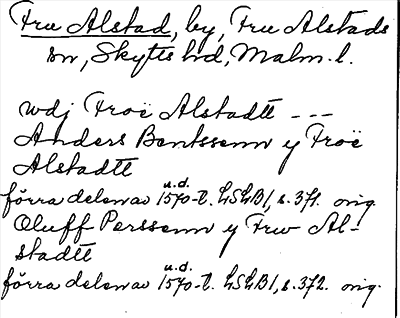 Fru Alstad, by, Fru Alstads
sn, Skytts hd, Malm. l.
wdj Froë Alstadtt ---
Anders Bentssenn y Froë
Alstadtt
u.d.
förra delen av 1570-t. LSLB1, s. 371. orig.
Oluff Perssenn y Frw Al-
stadtt
u.d.
förra delen av 1570-t. LSLB1, s. 372. orig.